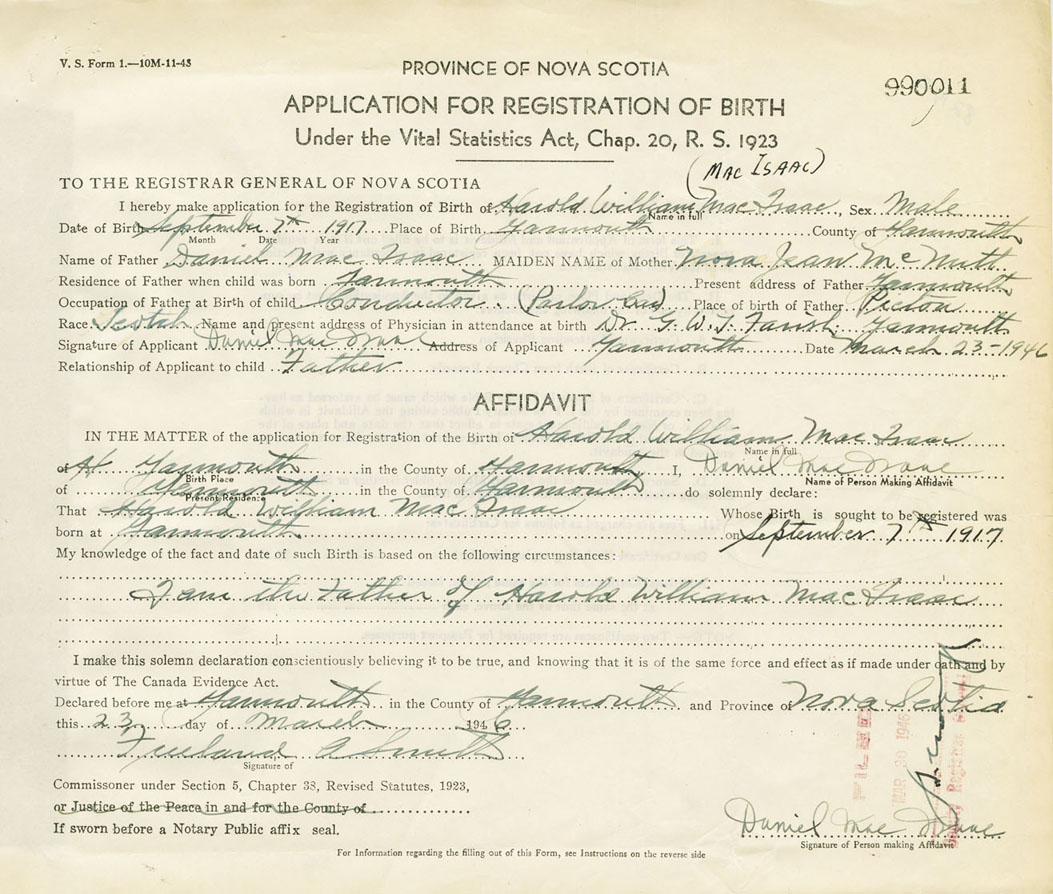 V. S. Form 1.—10M-11-43
PROVINCE OF NOVA SCOTIA
990011
APPLICATION FOR REGISTRATION OF BIRTH
Under the Vital Statistics Act, Chap. 20, R. S. 1923
(MAC ISAAC)
TO THE REGISTRAR GENERAL OF NOVA SCOTIA
I hereby make application for the Registration of Birth of Harold William Mac Isaac, Sex Male
Name in full
Date of Birth September 7th 1917 Place of Birth Yarmouth County of Yarmouth
Month Date Year
Name of Father Daniel Mac Isaac MAIDEN NAME of Mother Nora Jean McNutt
Residence of Father when child was born Yarmouth Present address of Father Yarmouth
Occupation of Father at Birth of child Conductor (Parlor Car) Place of birth of Father Picton
Race Scotch Name and present address of Physician in attendance at birth Dr. G. W. T. Farish Yarmouth
Signature of Applicant Daniel Mac Isaac Address of Applicant Yarmouth Date March 23-1946
Relationship of Applicant to child Father
AFFIDAVIT
IN THE MATTER of the application for Registration of the Birth of Harold William Mac Isaac
Name in full
of At Yarmouth in the County of Yarmouth I, Daniel Mac Isaac
Birth Place Name of Person Making Affidavit
of Yarmouth in the County of Yarmouth do solemnly declare:
Present Residence
That Harold William Mac Isaac Whose Birth is sought to be registered was
born at Yarmouth on September 7th 1917.
My knowledge of the fact and date of such Birth is based on the following circumstances:
I am the Father of Harold William Mac Isaac
I make this solemn declaration conscientiously believing it to be true, and knowing that it is of the same force and effect as if made under oath and by
virtue of The Canada Evidence Act.
Declared before me at Yarmouth in the County of Yarmouth and Province of Nova Scotia
this 23 day of March 1946
Freeland A Smith
Signature of
Commissioner under Section 5, Chapter 38, Revised Statutes, 1923,
or Justice of the Peace in and for the County of
If sworn before a Notary Public affix seal.
FILED
MAR 30 1946
Deputy Registrar
Daniel Mac Isaac
Signature of Person making Affidavit
For Information regarding the filling out of this Form, see Instructions on the reverse side